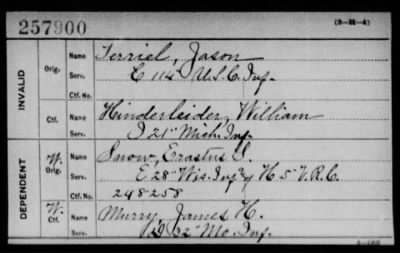 257900
(3—H—4)
INVALID
Orig. Name Terriel, Jason
Serv. C 114 U.S.C. Inf.
Ctf. No.
Ctf. Name Hinderleider, William
Serv. I 21" Mich. Inf.
DEPENDENT
W. Orig. Name Snow, Erastus S.
Serv. E 28" Wis. Inf. & H. 5" V.R.C.
Ctf. No. 248258
W. Ctf. Name Murry, James H.
Serv. D 32" Mo. Inf.